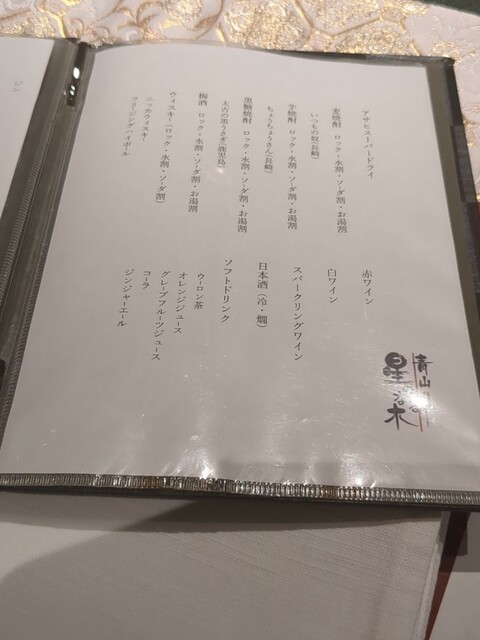 アサヒスーパードライ
麦焼酎 ロック・水割・ソーダ割・お湯割
いつもの奴(長崎)
芋焼酎 ロック・水割・ソーダ割・お湯割
ちょうちょうさん(長崎)
黒糖焼酎 ロック・水割・ソーダ割・お湯割
太古の黒うさぎ(鹿児島)
梅酒 ロック・水割・ソーダ割・お湯割
ウィスキー(ロック・水割・ソーダ割)
ニッカウィスキー
フリージングハイボール
赤ワイン
白ワイン
スパークリングワイン
日本酒(冷・燗)
ソフトドリンク
ウーロン茶
オレンジジュース
グレープフルーツジュース
コーラ
ジンジャーエール
青山
星
な木
ジン